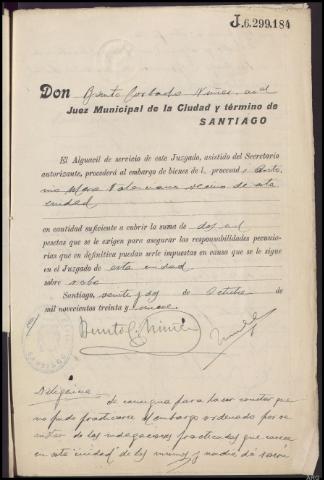 J.6.299.184
Don Benito Corbado Núñez
Juez Municipal de la Ciudad y término de
SANTIAGO
El Alguacil de servicio de este Juzgado, asistido del Secretario
autorizante, procederá al embargo de bienes de l. procesad
vecino de esta
ciudad
en cantidad suficiente a cubrir la suma de dos mil
pesetas que se le exigen para asegurar las responsabilidades pecunia-
rias que en definitiva puedan serle impuestas en causa que se le sigue
en el Juzgado de esta ciudad
sobre robo
Santiago, veinte y dos de Octubre de
mil novecientos treinta y nueve
Benito C. Núñez
Diligencia de
no pudo practicarse el embargo ordenado por re
sultar de las indagaciones practicadas que carece
en esta ciudad de los mismos y nadie dá razón